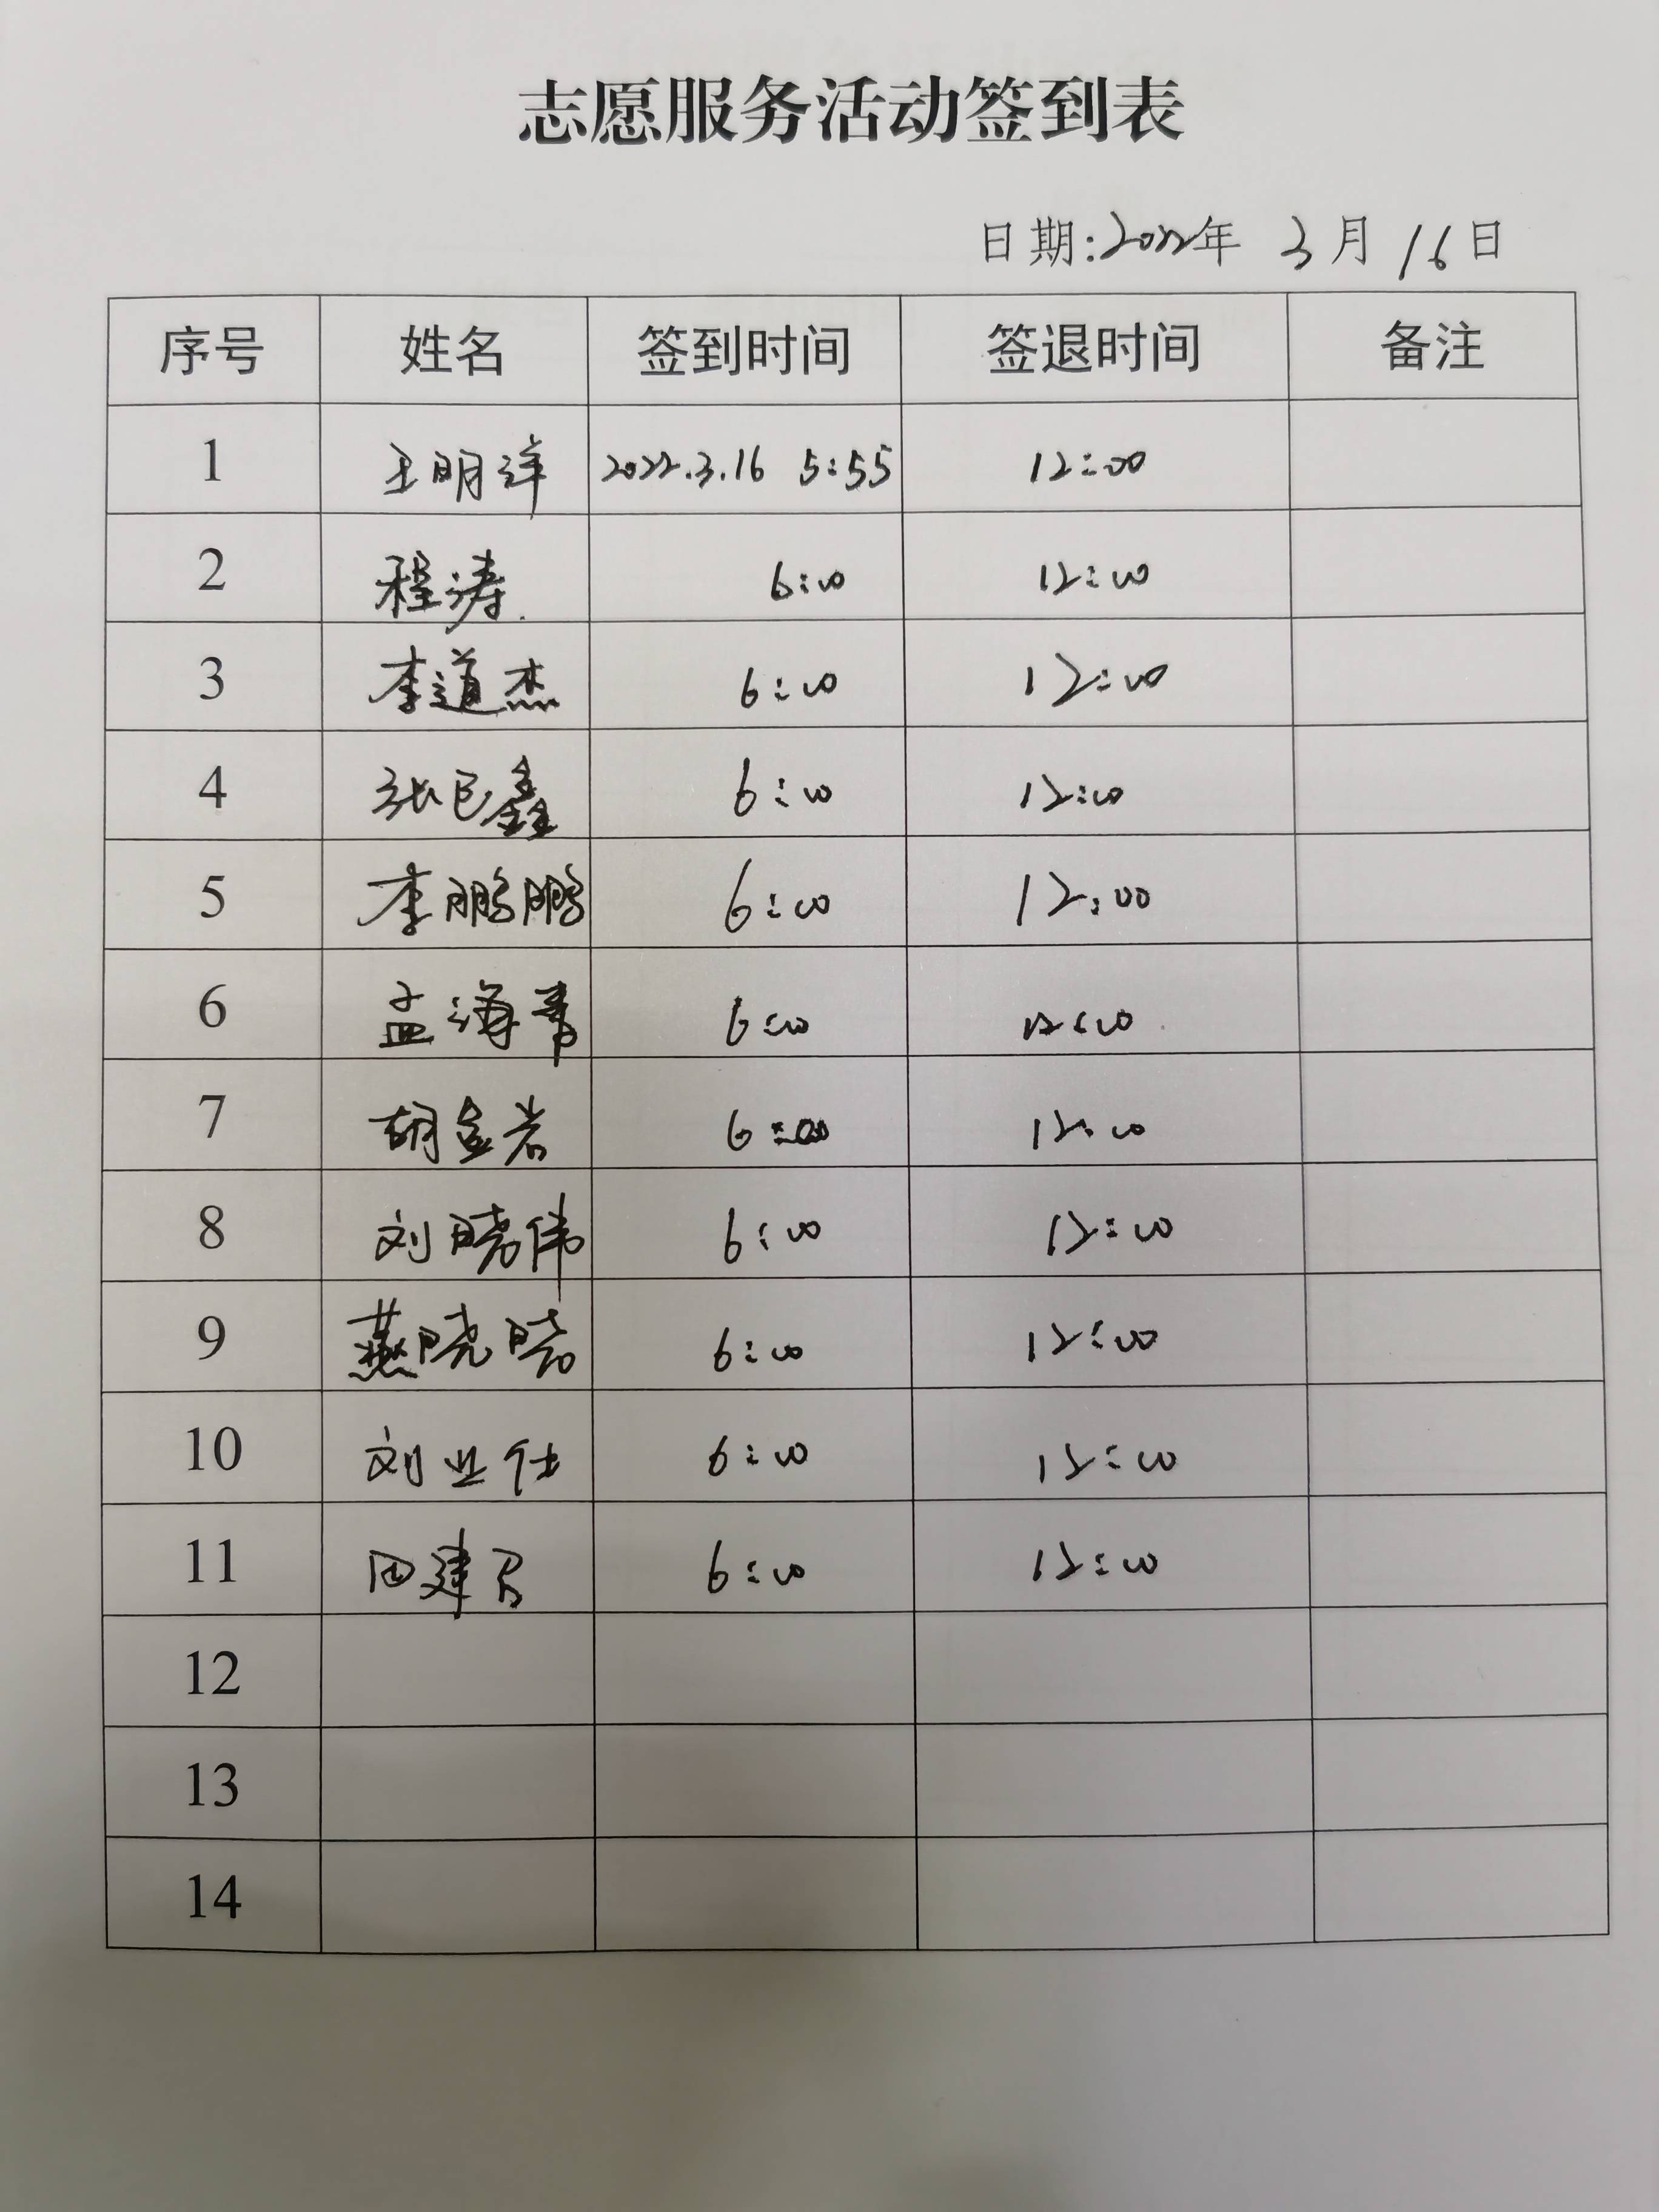 志愿服务活动签到表
日期:2022年 3月 16日
序号 姓名 签到时间 签退时间 备注
1 王明洋 2022.3.16 5:55 12:00
2 程涛 6:00 12:00
3 李道杰 6:00 12:00
4 张巨鑫 6:00 12:00
5 李鹏鹏 6:00 12:00
6 孟海青 6:00 12:00
7 胡金岩 6:00 12:00
8 刘晓伟 6:00 12:00
9 燕晓晓 6:00 12:00
10 刘业仕 6:00 12:00
11 田建 6:00 12:00
12
13
14